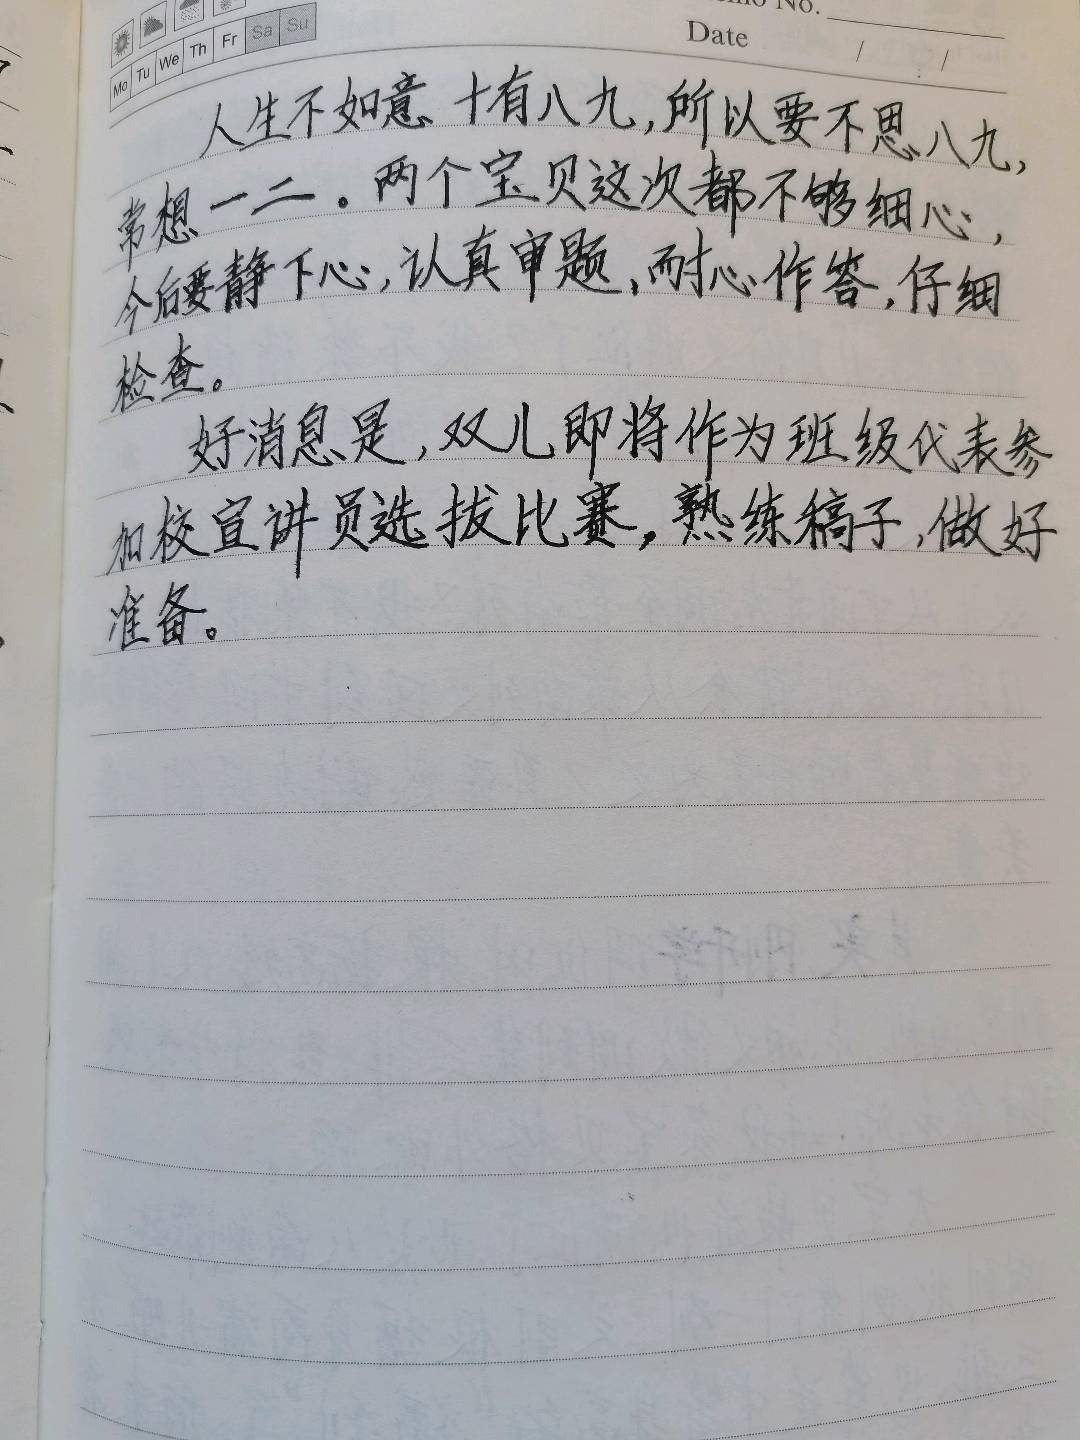 Memo No.
Mo Tu We Th Fr Sa Su
Date / /
人生不如意十有八九,所以要不思八九,
常想一二。两个宝贝这次都不够细心,
今后要静下心,认真审题,耐心作答,仔细
检查。
好消息是,双儿即将作为班级代表参
加校宣讲员选拔比赛,熟练稿子,做好
准备。